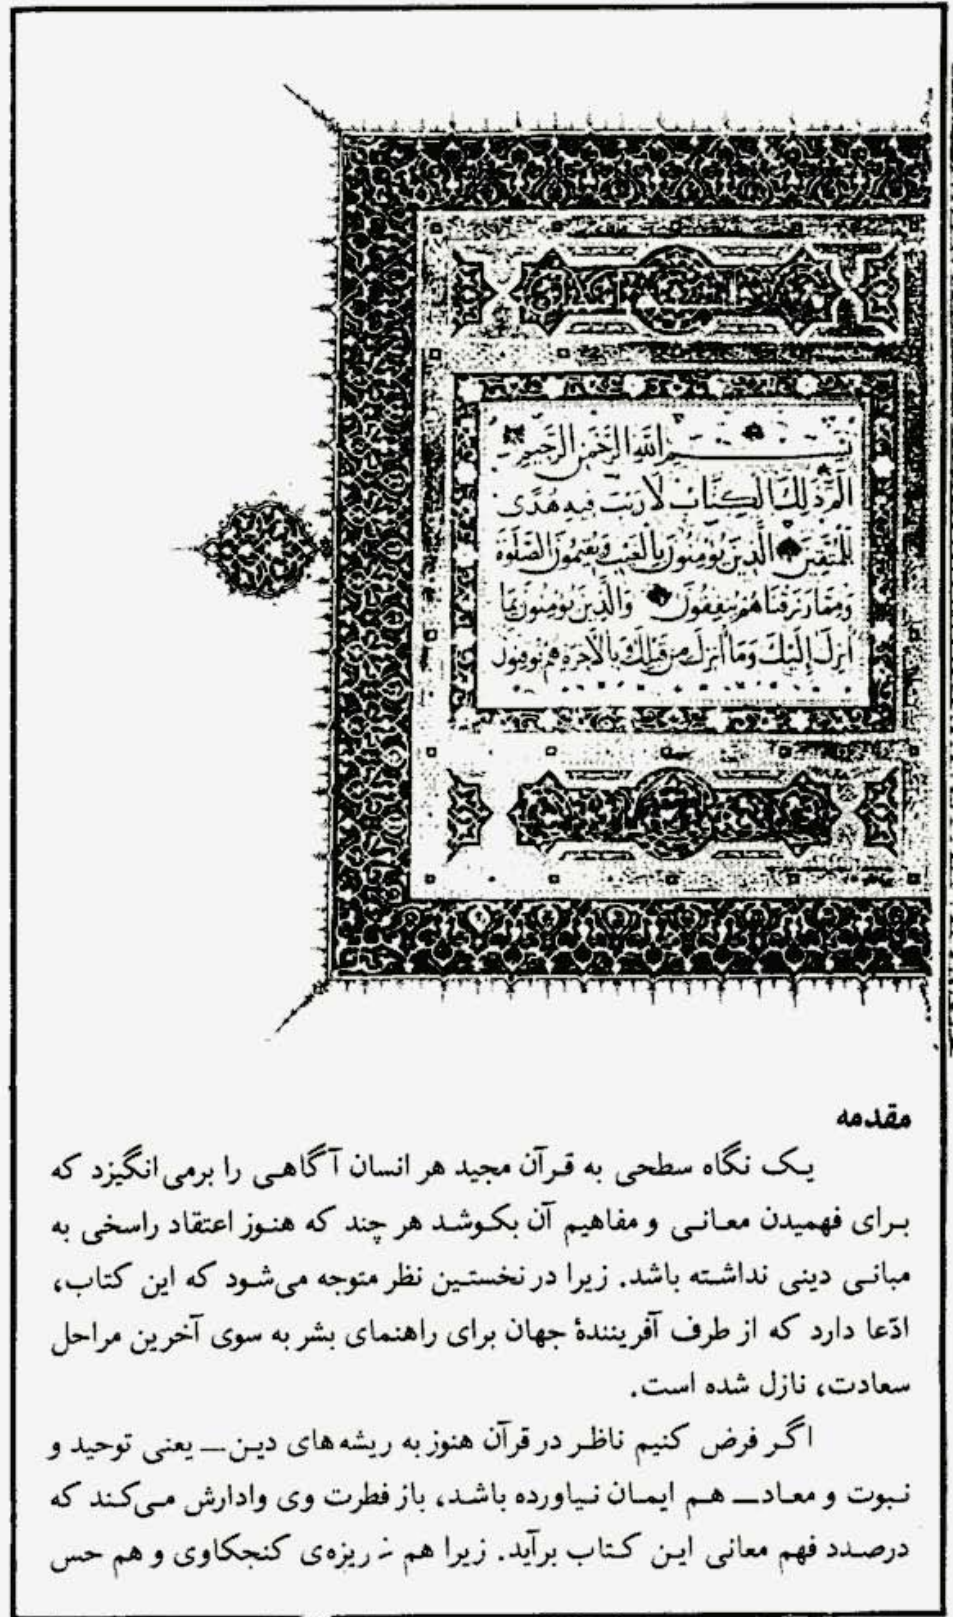 بسم الله الرحمن الرحیم
الم ذلك الكتاب لا ريب فيه هدى
للمتقين الذين يؤمنون بالغيب ويقيمون الصلوة
ومما رزقناهم ينفقون والذين يؤمنون بما
انزل إليك وما انزل من قبلك بالآخرة هم يوقنون
مقدمه
یک نگاه سطحی به قرآن مجید هر انسان آگاهی را برمی‌انگیزد که
برای فهمیدن معانی و مفاهیم آن بکوشد هر چند که هنوز اعتقاد راسخی به
مبانی دینی نداشته باشد. زیرا در نخستین نظر متوجه می‌شود که این کتاب،
ادّعا دارد که از طرف آفرینندۀ جهان برای راهنمای بشر به سوی آخرین مراحل
سعادت، نازل شده است.
اگر فرض کنیم ناظر در قرآن هنوز به ریشه‌های دین — یعنی توحید و
نبوت و معاد — هم ایمان نیاورده باشد، باز فطرت وی وادارش می‌کند که
درصدد فهم معانی این کتاب برآید. زیرا هم ریزه‌ی کنجکاوی و هم حس